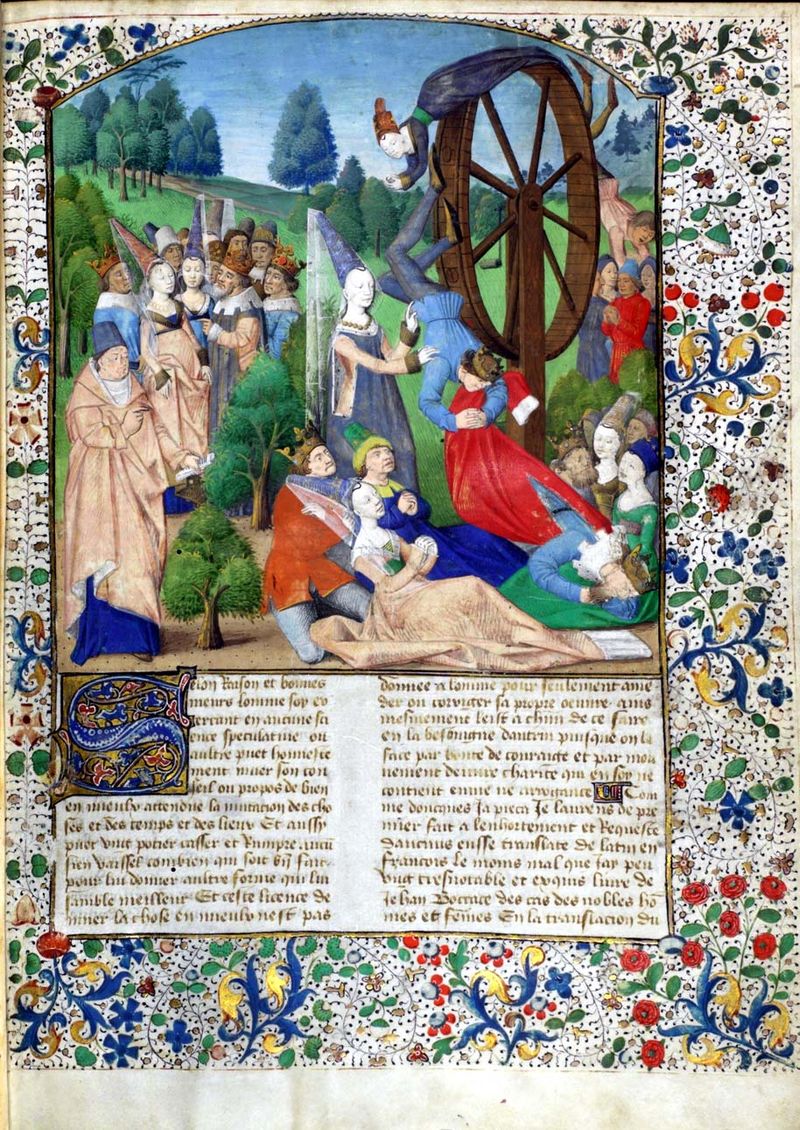 Selon Raison et bonnes
meurs lomme soy ex
ercant en aucune sci
ence speculative ou
aultre puet honneste
ment muer son con
seil ou propos de bien
en mieulx attendue la mutation des cho
ses et des temps et des lieux Et aussy
puet ung potier casser et Rumpre aucu
sien vaissel combien qui soit bn fait
pour lui donner aultre forme qui lui
samble meilleur Et ceste licence de
muer la chose en mieulx nest pas
donnee a lomme pour seulement ame
der ou corriger sa propre oeuvre ains
mesmement leist a chun de ce faire
en la besoingne dautrui puisque on la
face par bonte de couraige et par mou
uement de vraye charite qui en soy ne
contient enuie ne arrogance Com
me doncques Ja pieca Je laurens de pre
mier fait a lenhortement et Requeste
daucuns eusse translate de latin en
francois le moins mal que Jay peu
ung tresnotable et exquis liure de
Jehan Boccace des cas des nobles ho
mes et femes En la translacion du